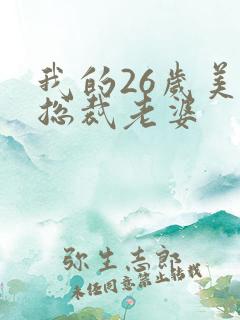 我的26岁美
总裁老婆
弥生志郎
未经同意禁止转载